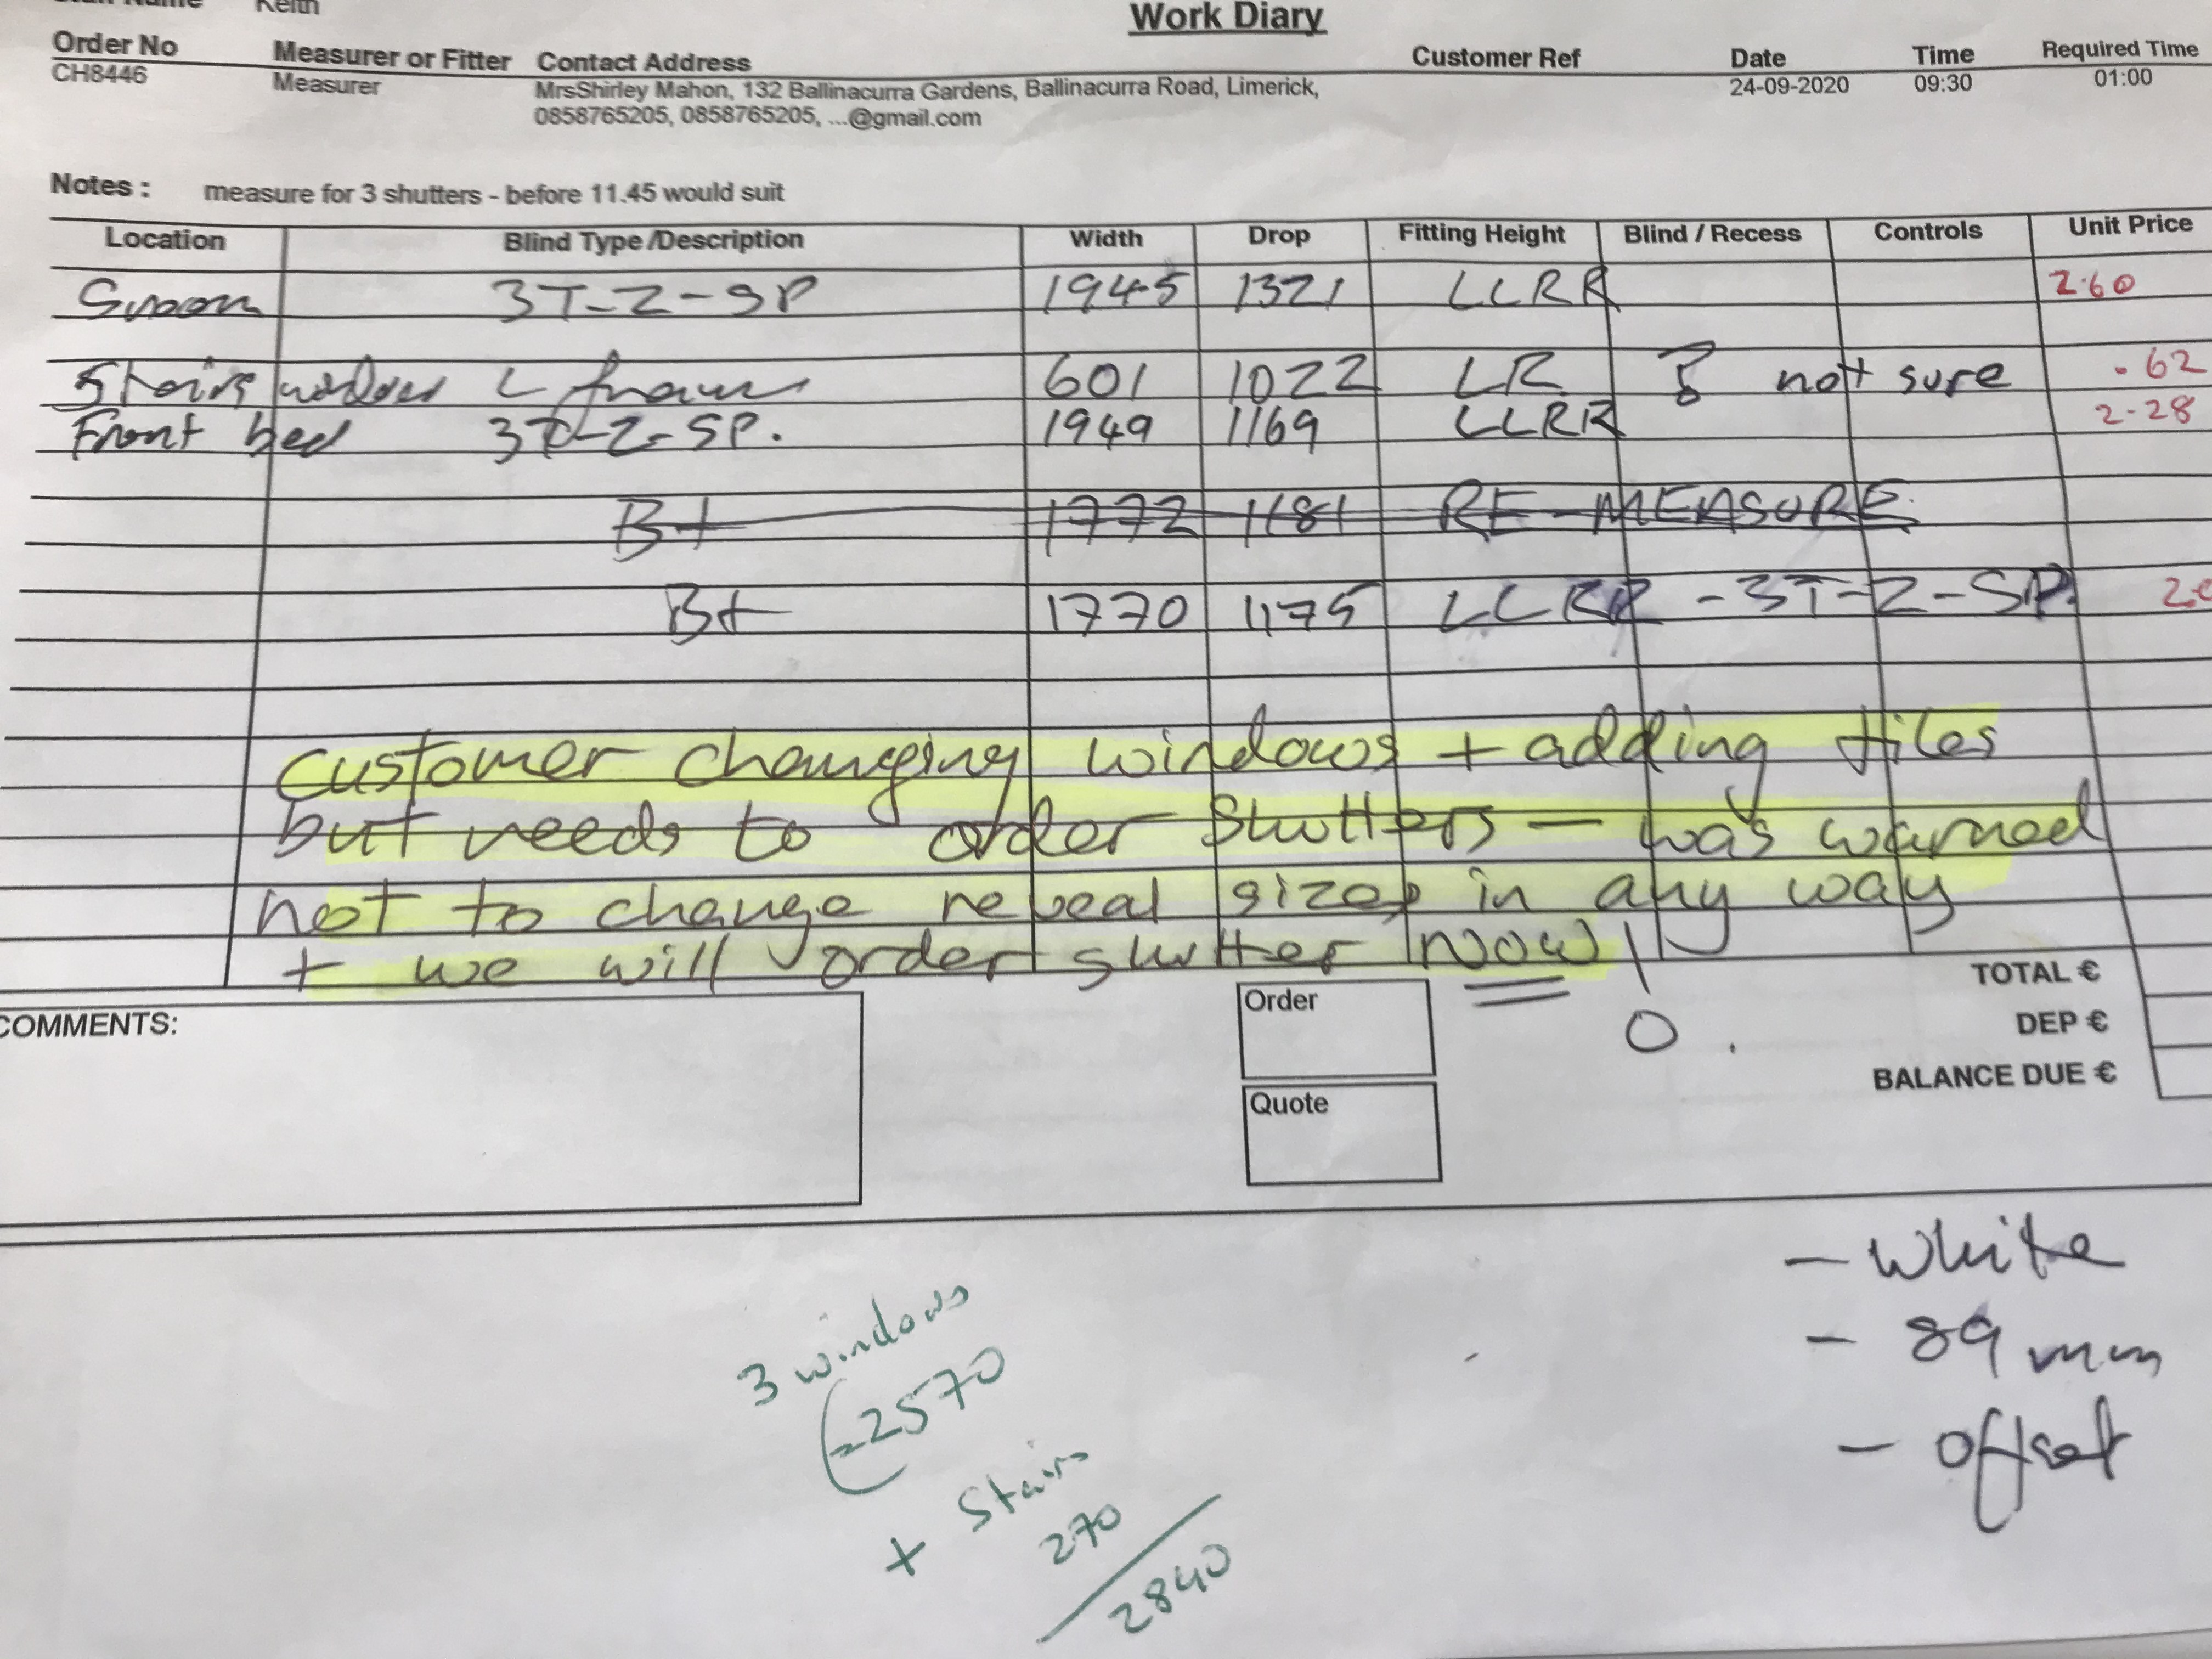 Staff Name Keith
Work Diary
Order No Measurer or Fitter Contact Address Customer Ref Date Time Required Time
CH8446 Measurer MrsShirley Mahon, 132 Ballinacurra Gardens, Ballinacurra Road, Limerick, 24-09-2020 09:30 01:00
0858765205, 0858765205, ...@gmail.com
Notes : measure for 3 shutters - before 11.45 would suit
Location Blind Type /Description Width Drop Fitting Height Blind / Recess Controls Unit Price
3T-Z-SP 1945 1321 LLRR 2.60
Stairs window L frame 601 1022 LR ? not sure .62
Front bed 3T-Z-SP. 1949 1169 LLRR 2-28
B+ 1772 1181 RE-MEASURE.
B+ 1770 1175 LLRR - 3T-Z-SP.
customer changing windows + adding tiles
but needs to order shutters - was warned
not to change reveal sizes in any way
+ we will order shutter NOW!
TOTAL €
COMMENTS: Order DEP €
BALANCE DUE €
Quote
- white
3 windows
- 89 mm
=2570
- offset
+ Stairs
270
2840